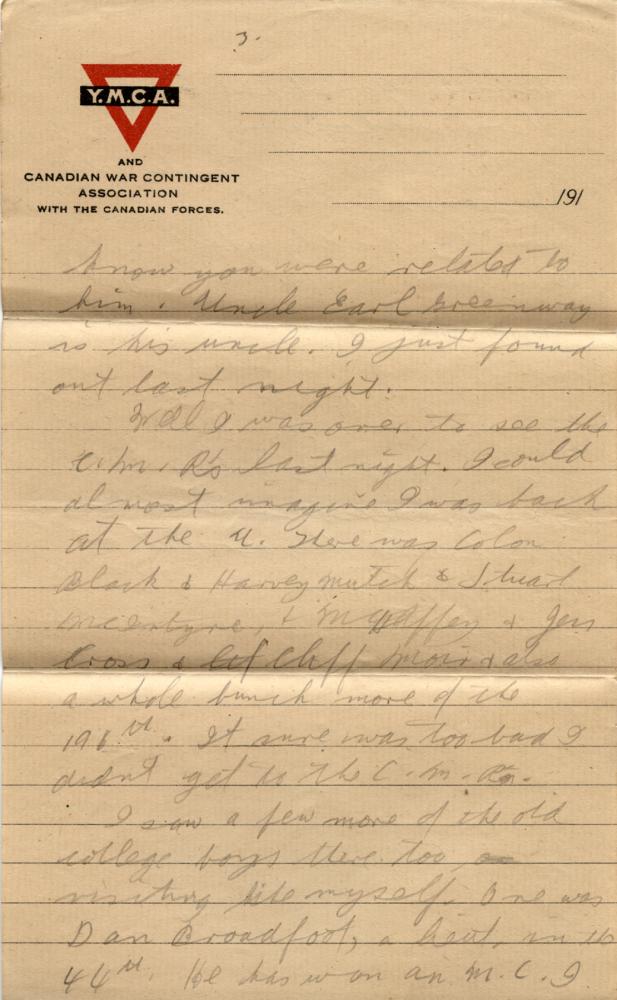 3.
Y.M.C.A.
AND
CANADIAN WAR CONTINGENT
ASSOCIATION
WITH THE CANADIAN FORCES.
191
know you were related to
him. Uncle Earl Greenway
is his uncle. I just found
out last night.
Well I was over to see the
C.M.R's last night. I could
almost imagine I was back
at the U. There was Colon
Black & Harvey Mutch & Stuart
McEntyre, & & Jen
Cross & Cliff Moir & also
a whole bunch more of the
196th. It sure was too bad I
didn't get to the C.M.Rs.
I saw a few more of the old
college boys there too
visiting like myself. One was
Dan Broadfoot, a lieut, in th
46th. He has won an M.C. I